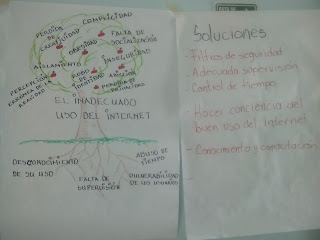 COMPLICIDAD
PERDIDA DE CREATIVIDAD
FALTA DE SOCIALIZACIÓN
OBESIDAD
INSEGURIDAD
AISLAMIENTO
ROBO DE IDENTIDAD
ADICCIÓN
PERCEPCIÓN ERRÓNEA DE REALIDAD
PERDIDA DE
EL INADECUADO
USO DEL INTERNET
DESCONOCIMIENTO
DE SU USO
FALTA DE
SUPERVISIÓN
ABUSO DE
TIEMPO
VULNERABILIDAD
DE LOS USUARIOS
Soluciones
- Filtros de seguridad
- Adecuada supervisión
- Control de tiempo
- Hacer conciencia del
buen uso del Internet
- Conocimiento y capacitación